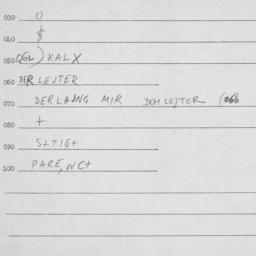 030 O
040 $
050 QGL) KALX
060 DER LEJTER
070 DERLAJNG MJR DEM LEJTER (066
080 +
090 S+TIG+
100 PARE,NC+